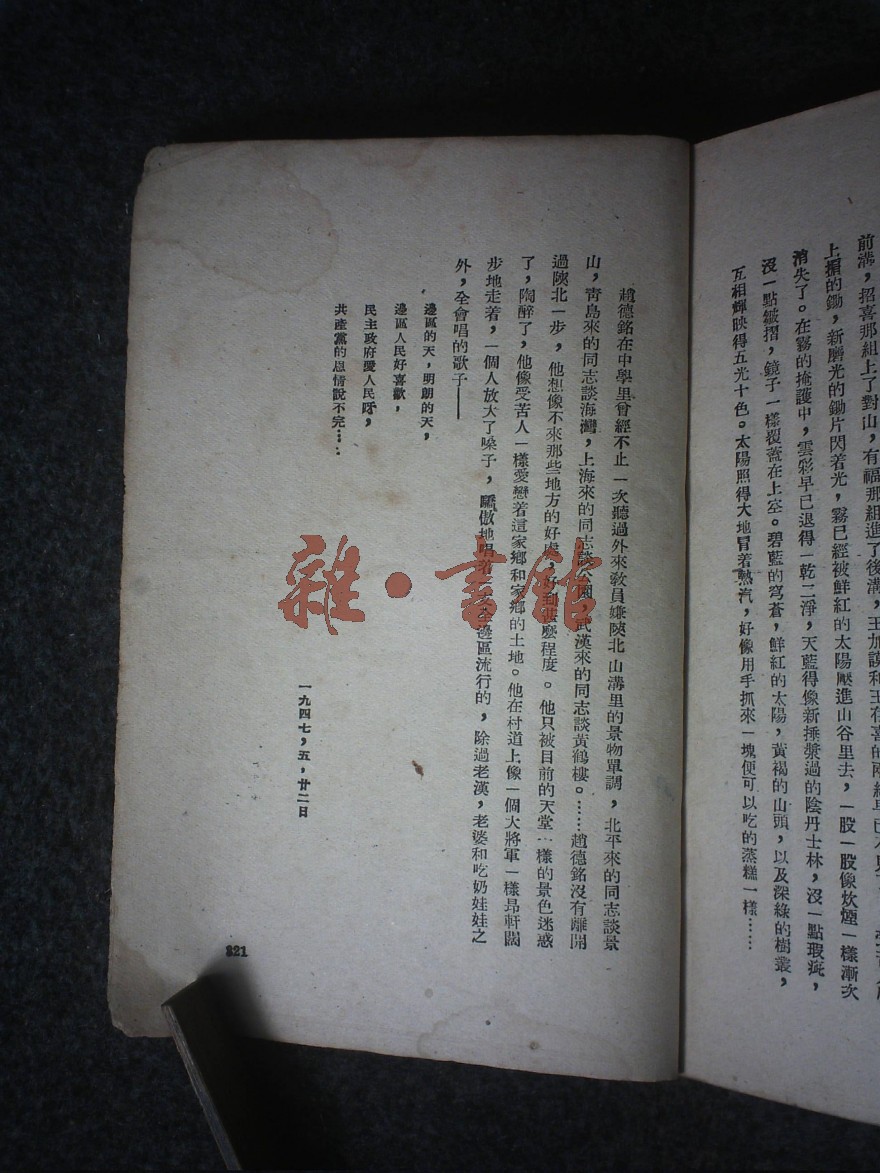 前溝，招喜那組上了對山，有福那組進了後溝，王加謨和王存喜的兩組早已不見了
上揹的鋤，新磨光的鋤片閃着光，霧已經被鮮紅的太陽壓進山谷里去，一股一股像炊煙一樣漸次
消失了。在霧的掩護中，雲彩早已退得一乾二淨，天藍得像新捶漿過的陰丹士林，沒一點瑕疵，
沒一點皺摺，鏡子一樣覆蓋在上空。碧藍的穹蒼，鮮紅的太陽，黃褐的山頭，以及深綠的樹叢，
互相輝映得五光十色。太陽照得大地冒着熱汽，好像用手抓來一塊便可以吃的蒸糕一樣……
趙德銘在中學里曾經不止一次聽過外來教員嫌陝北山溝里的景物單調，北平來的同志談景
山，靑島來的同志談海灣，上海來的同志談公園，武漢來的同志談黃鶴樓。……趙德銘沒有離開
過陝北一步，他想像不來那些地方的好處，好到甚麽程度。他只被目前的天堂一樣的景色迷惑
了，陶醉了，他像受苦人一樣愛戀着這家鄉和家鄉的土地。他在村道上像一個大將軍一樣昂軒闊
步地走着，一個人放大了嗓子，驕傲地唱着邊區流行的，除過老漢，老婆和吃奶娃娃之
外，全會唱的歌子——
邊區的天，明朗的天，
邊區人民好喜歡，
民主政府愛人民呀，
共產黨的恩情說不完……
一九四七，五，廿二日
321
雜·書館